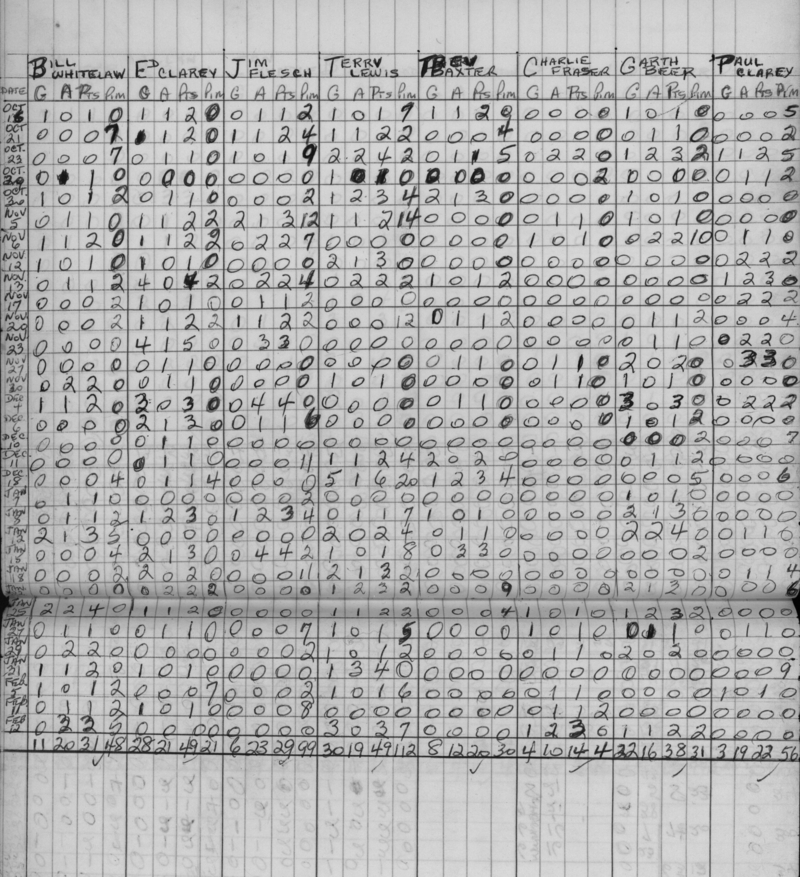 BILL WHITELAW ED CLAREY JIM FLESCH TERRY LEWIS BEV BAXTER CHARLIE FRASER GARTH BEER PAUL CLAREY
DATE G A Pts Pim G A Pts Pim G A Pts Pim G A Pts Pim G A Pts Pim G A Pts Pim G A Pts Pim G A Pts Pim
OCT 16 1 0 1 0 1 1 2 0 0 1 1 2 1 0 1 9 1 1 2 0 0 0 0 0 1 0 1 0 0 0 0 5
OCT 21 0 0 0 7 1 1 2 0 1 1 2 4 1 1 2 2 0 0 0 4 0 0 0 0 0 1 1 0 0 0 0 2
OCT 23 0 0 0 7 0 1 1 0 1 0 1 9 2 2 4 2 0 1 1 5 0 2 2 0 1 2 3 2 1 1 2 5
OCT 0 1 1 0 0 0 0 0 0 0 0 0 1 0 1 0 0 0 0 0 0 0 0 2 0 0 0 0 0 1 1 2
OCT 30 1 0 1 2 0 1 1 0 0 0 0 2 1 2 3 4 2 1 3 0 0 0 0 0 1 0 1 0 0 0 0 0
NOV 5 0 1 1 0 1 1 2 2 2 1 3 12 1 1 2 14 0 0 0 0 0 1 1 0 1 0 1 0 0 0 0 0
NOV 1 1 2 0 1 1 2 2 0 2 2 7 0 0 0 0 0 0 0 0 1 0 1 0 0 2 2 10 0 1 1 0
NOV 12 1 0 1 0 1 0 1 0 0 0 0 0 2 1 3 0 0 0 0 0 0 0 0 0 0 0 0 0 0 2 2 2
NOV 13 0 1 1 2 4 0 4 2 0 2 2 4 0 2 2 2 1 0 1 2 0 0 0 0 0 0 0 0 1 2 3 0
NOV 17 0 0 0 2 1 0 1 0 0 1 1 2 0 0 0 0 0 0 0 0 0 0 0 0 0 0 0 0 0 2 2 2
NOV 20 0 0 0 2 1 1 2 2 1 1 2 2 0 0 0 12 0 1 1 2 0 0 0 0 0 1 1 2 0 0 0 4
NOV 23 0 0 0 0 4 1 5 0 0 3 3 0 0 0 0 0 0 0 0 0 0 0 0 0 0 1 1 0 0 2 2 0
NOV 27 0 0 0 0 0 1 1 0 0 0 0 0 0 0 0 0 0 1 1 0 0 1 1 0 2 0 2 0 0 3 3 0
NOV 30 0 2 2 0 0 1 1 0 0 0 0 0 1 0 1 0 0 0 0 0 0 1 1 0 1 0 1 0 0 0 0 0
DEC 4 1 1 2 0 3 0 3 0 0 4 4 0 0 0 0 0 0 1 1 0 0 0 0 0 3 0 3 0 0 2 2 2
DEC 6 0 0 0 0 2 1 3 0 0 1 1 6 0 0 0 0 0 0 0 0 0 0 0 0 1 0 1 2 0 0 0 0
DEC 10 0 0 0 0 0 1 1 0 0 0 0 0 0 0 0 0 0 0 0 0 0 0 0 0 0 0 0 2 0 0 0 7
DEC 11 0 0 0 0 0 1 1 0 0 0 0 11 1 1 2 4 2 0 2 0 0 0 0 0 0 1 1 2 0 0 0 0
DEC 18 0 0 0 4 0 1 1 4 0 0 0 0 5 1 6 20 1 2 3 4 0 0 0 0 0 0 0 5 0 0 0 6
JAN 0 1 1 0 0 0 0 0 0 0 0 2 0 0 0 0 0 0 0 0 0 0 0 0 1 0 1 0 0 0 0 0
JAN 0 1 1 2 1 2 3 0 1 2 3 4 0 1 1 7 1 0 1 0 0 0 0 0 2 1 3 0 0 0 0 0
JAN 2 1 3 5 0 0 0 0 0 0 0 0 2 0 2 4 0 1 1 0 0 0 0 0 2 2 4 0 0 1 1 0
JAN 0 0 0 4 2 1 3 0 0 4 4 2 1 0 1 8 0 3 3 0 0 0 0 0 0 0 0 2 0 0 0 0
JAN 18 0 0 0 2 2 0 2 0 0 0 0 11 2 1 3 2 0 0 0 0 0 0 0 0 0 0 0 0 0 1 1 4
0 0 0 0 0 2 2 2 0 0 0 0 1 2 3 2 0 0 0 9 0 0 0 0 2 1 3 0 0 0 0 6
JAN 25 2 2 4 0 1 1 2 0 0 0 0 0 1 1 2 2 0 0 0 4 1 0 1 0 1 2 3 2 0 0 0 0
JAN 0 1 1 0 0 1 1 0 0 0 0 7 1 0 1 5 0 0 0 0 1 0 1 0 0 1 1 0 0 1 1 0
JAN 29 0 2 2 0 0 0 0 0 0 0 0 2 1 0 1 2 0 0 0 0 0 1 1 0 2 0 2 0 0 0 0 0
JAN 31 1 1 2 0 1 0 1 0 0 0 0 0 1 3 4 0 0 0 0 0 0 0 0 0 0 0 0 0 0 0 0 9
FEB 5 1 0 1 2 0 0 0 7 0 0 0 2 1 0 1 6 0 0 0 0 0 1 1 0 0 0 0 0 1 0 1 0
FEB 11 0 1 1 2 1 0 1 0 0 0 0 8 0 0 0 0 0 0 0 0 0 1 1 2 0 0 0 0 0 0 0 0
FEB 12 0 3 3 2 0 0 0 0 0 0 0 0 3 0 3 7 0 0 0 0 1 2 3 0 1 1 2 2 0 0 0 0
11 20 31 48 28 21 49 21 6 23 29 99 30 19 49 112 8 12 20 30 4 10 14 4 22 16 38 31 3 19 22 56